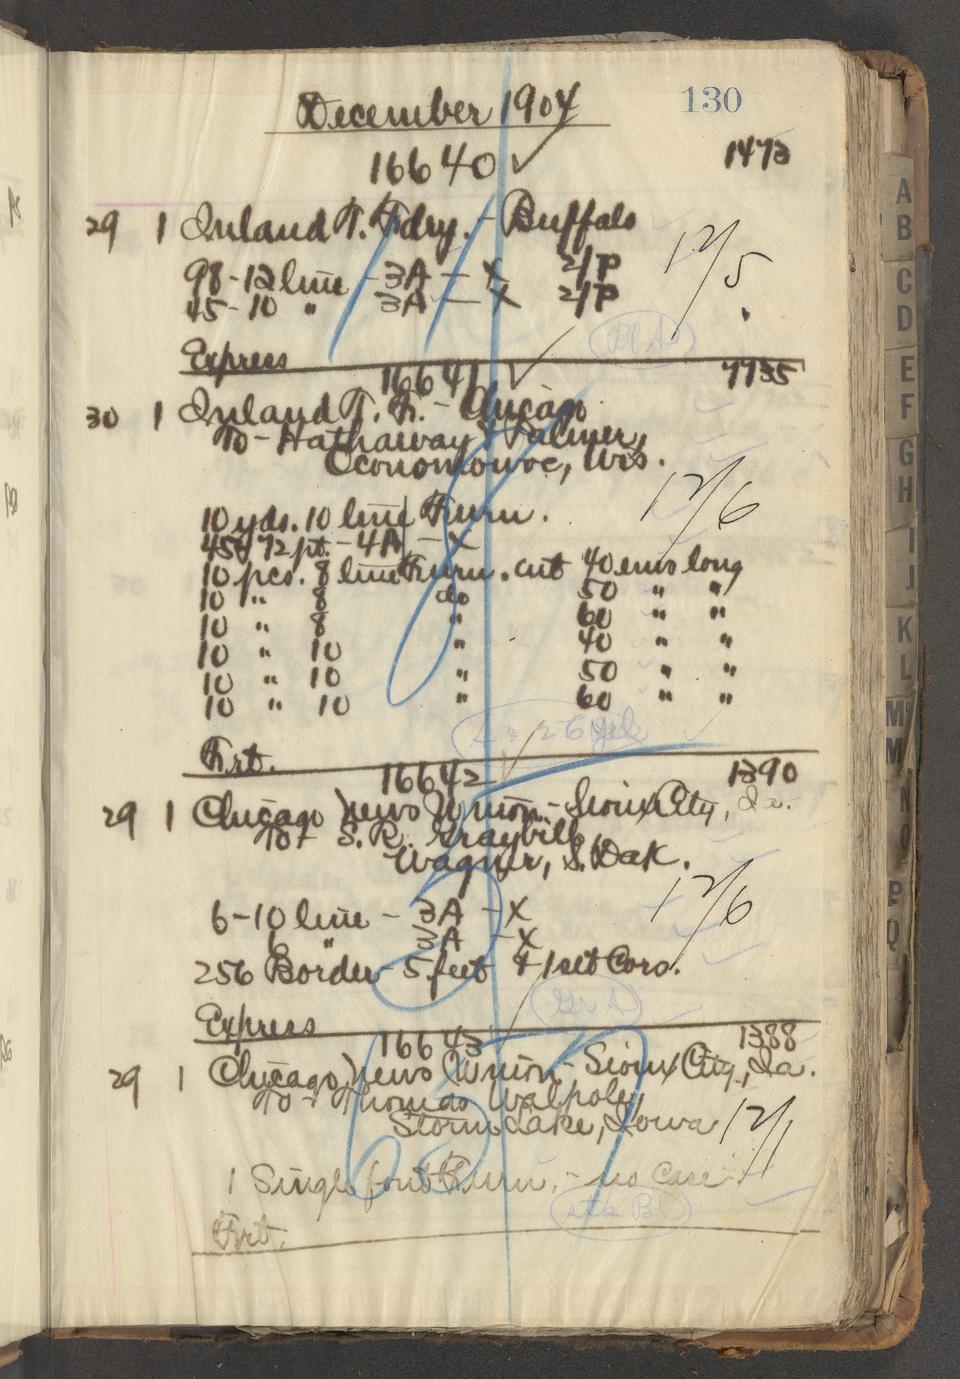 December 1904
130
16640
1473
29 1 Inland T. Fdry. - Buffalo
98-12 line - 3A - X 2/P
45-10 " 3A - X 2/P
12/5
Bl S
Express
16641
7735
30 1 Inland T. F. - Chicago
To - Hathaway & Palmer,
Oconomowoc, Wis.
12/6
10 yds. 10 line Furn.
72 pt. - 4A - X
10 pcs. 8 line Furn. cut 40 ems long
10 " 8 do 50 " "
10 " 8 " 60 " "
10 " 10 " 40 " "
10 " 10 " 50 " "
10 " 10 " 60 " "
26
Frt.
16642
1390
29 1 Chicago News Union - Sioux City, Ia.
To - S. R. Graybill
Wagner, S. Dak.
12/6
6-10 line - 3A - X
6 " 3A - X
256 Border - 5 feet & 1 set Cors.
Gr S
Express
16643
1388
29 1 Chicago News Union - Sioux City, Ia.
To - Thomas Walpole,
Storm Lake, Iowa
12/1
1 Single font Furn. - no case
stk Bl
Frt.
A
B
C
D
E
F
G
H
I
J
K
L
Mc
M
N
O
P
Q